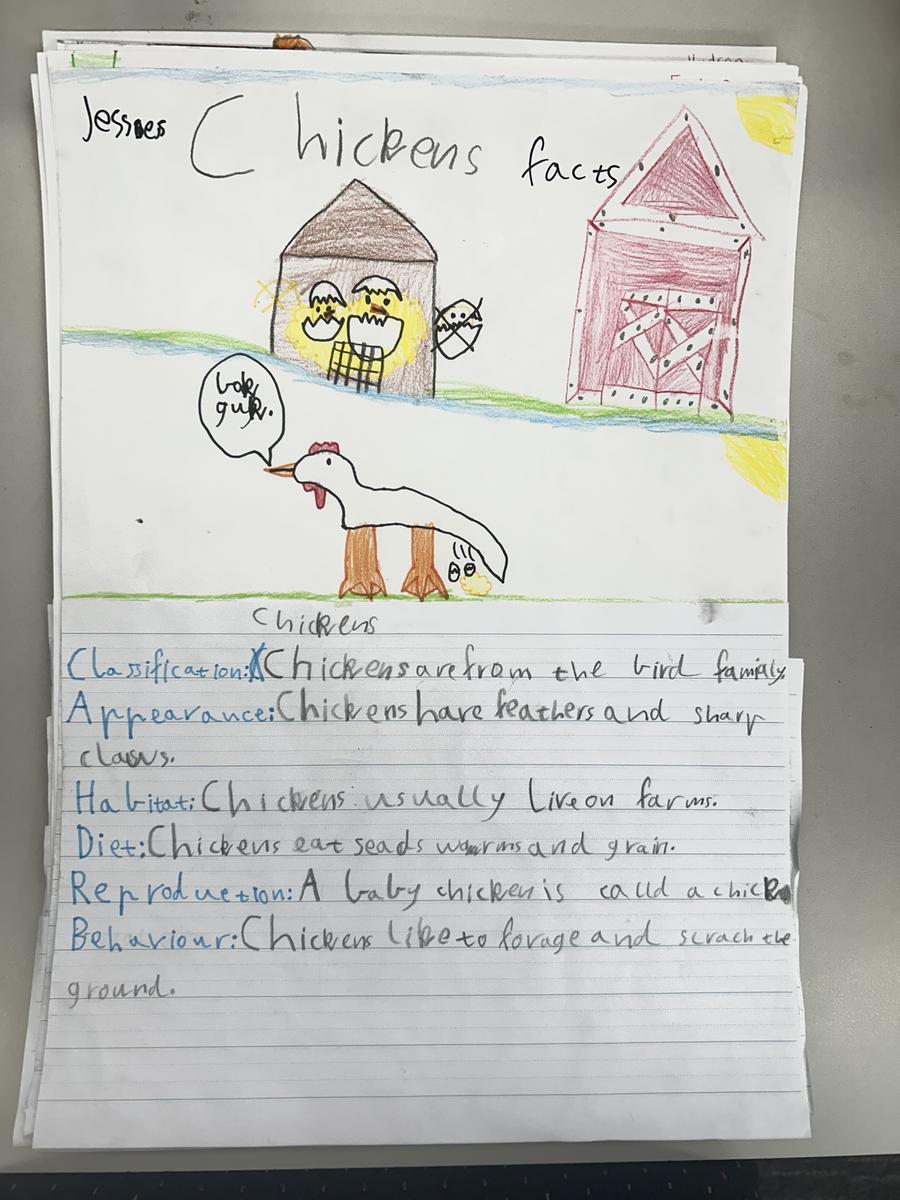 Jesses Chickens facts
bok
guk.
Chickens
Classification: Chickens are from the bird family.
Appearance: Chickens have feathers and sharp
claws.
Habitat: Chickens usually live on farms.
Diet: Chickens eat seads worms and grain.
Reproduction: A baby chicken is calld a chick
Behaviour: Chickens like to forage and scrach the
ground.